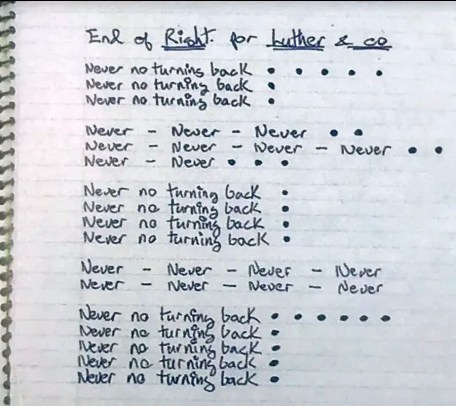 End of Right. for Luther & co
Never no turning back • • • • •
Never no turning back •
Never no turning back •
Never - Never - Never • •
Never - Never - Never - Never • •
Never - Never • • •
Never no turning back •
Never no turning back •
Never no turning back •
Never no turning back •
Never - Never - Never - Never
Never - Never - Never - Never
Never no turning back • • • • • •
Never no turning back •
Never no turning back •
Never no turning back •
Never no turning back •